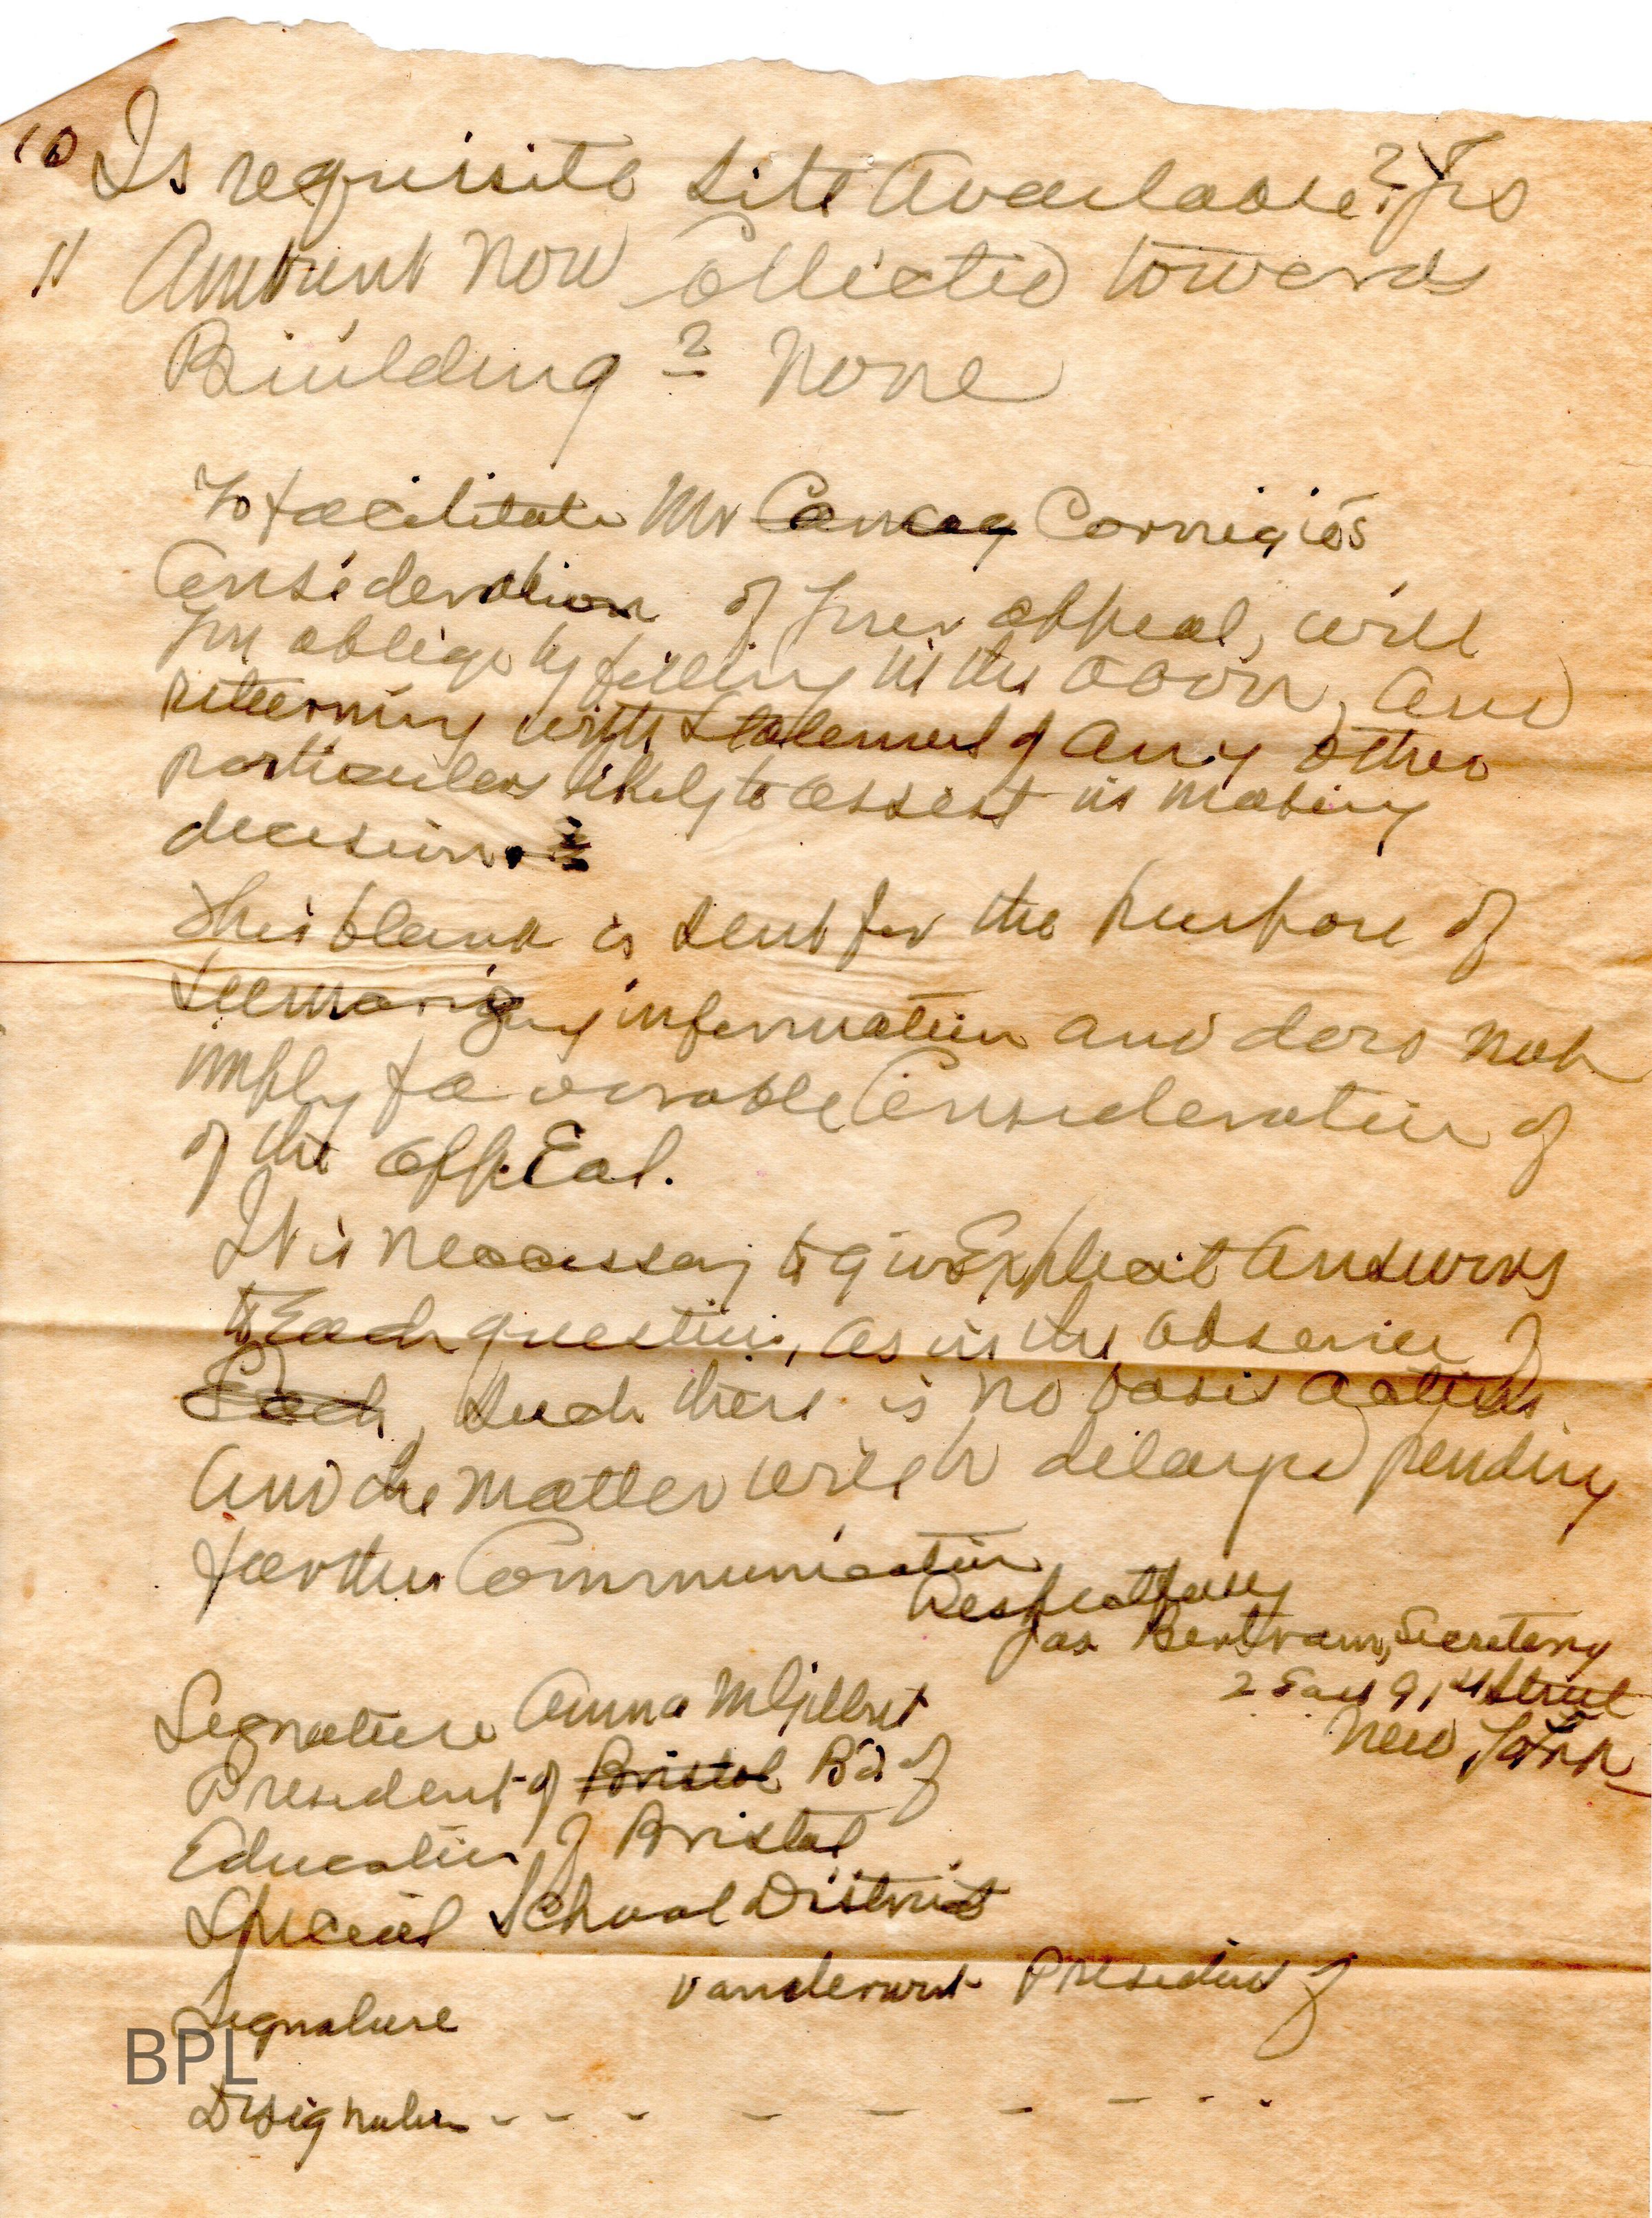 10 Is requisite site available? Yes
11 Amount now collected towards
Building? None
To facilitate Mr Carneg Carnigies
Consideration of your appeal, will
you oblige by filling in the above, and
returning with statement of any other
particulars likely to assist in making
decision.
This blank is sent for the purpose of
information and does not
imply favorable Consideration of
of the appEal.
It is necessary to give Explicit answers
to Each question, as in the absence of
Each, such there is no basis action
and the matter will be delayed pending
farther Communication
Respectfully
Jas Bertram, Secretary
2 East 91st Street
New York
Signature Anna M Gilbert
President of Bristol Bd of
Education of Bristol
Special School District
Vandervort President of
Signature
BPL
Designation - - - - - - - - - -